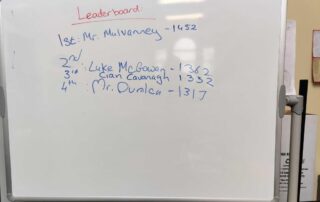 Leaderboard
1st: Mr. Mulvenney - 1452
2nd : Luke McGowan - 1382
3rd Cian Cavanagh 1332
4th : Mr. - 1317